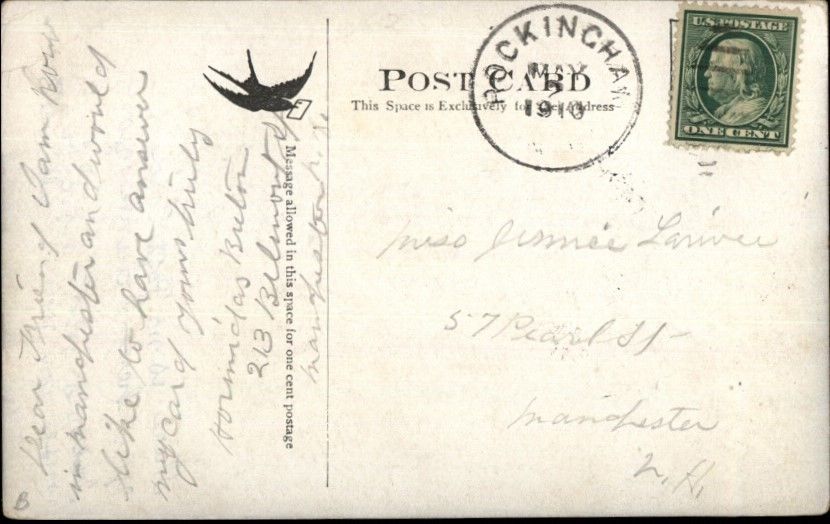 Dear Friend I am now
in Manchester and would
like to have answer
my card yours truly
Hormidas Breton
213 Belmont St
Manchester N.H.
Message allowed in this space for one cent postage
POST CARD
This Space is Exclusively for the Address
ROCKINGHAM
MAY
1910
U.S. POSTAGE
ONE CENT
Miss Larivee
57 Pearl St
Manchester
N.H.
B